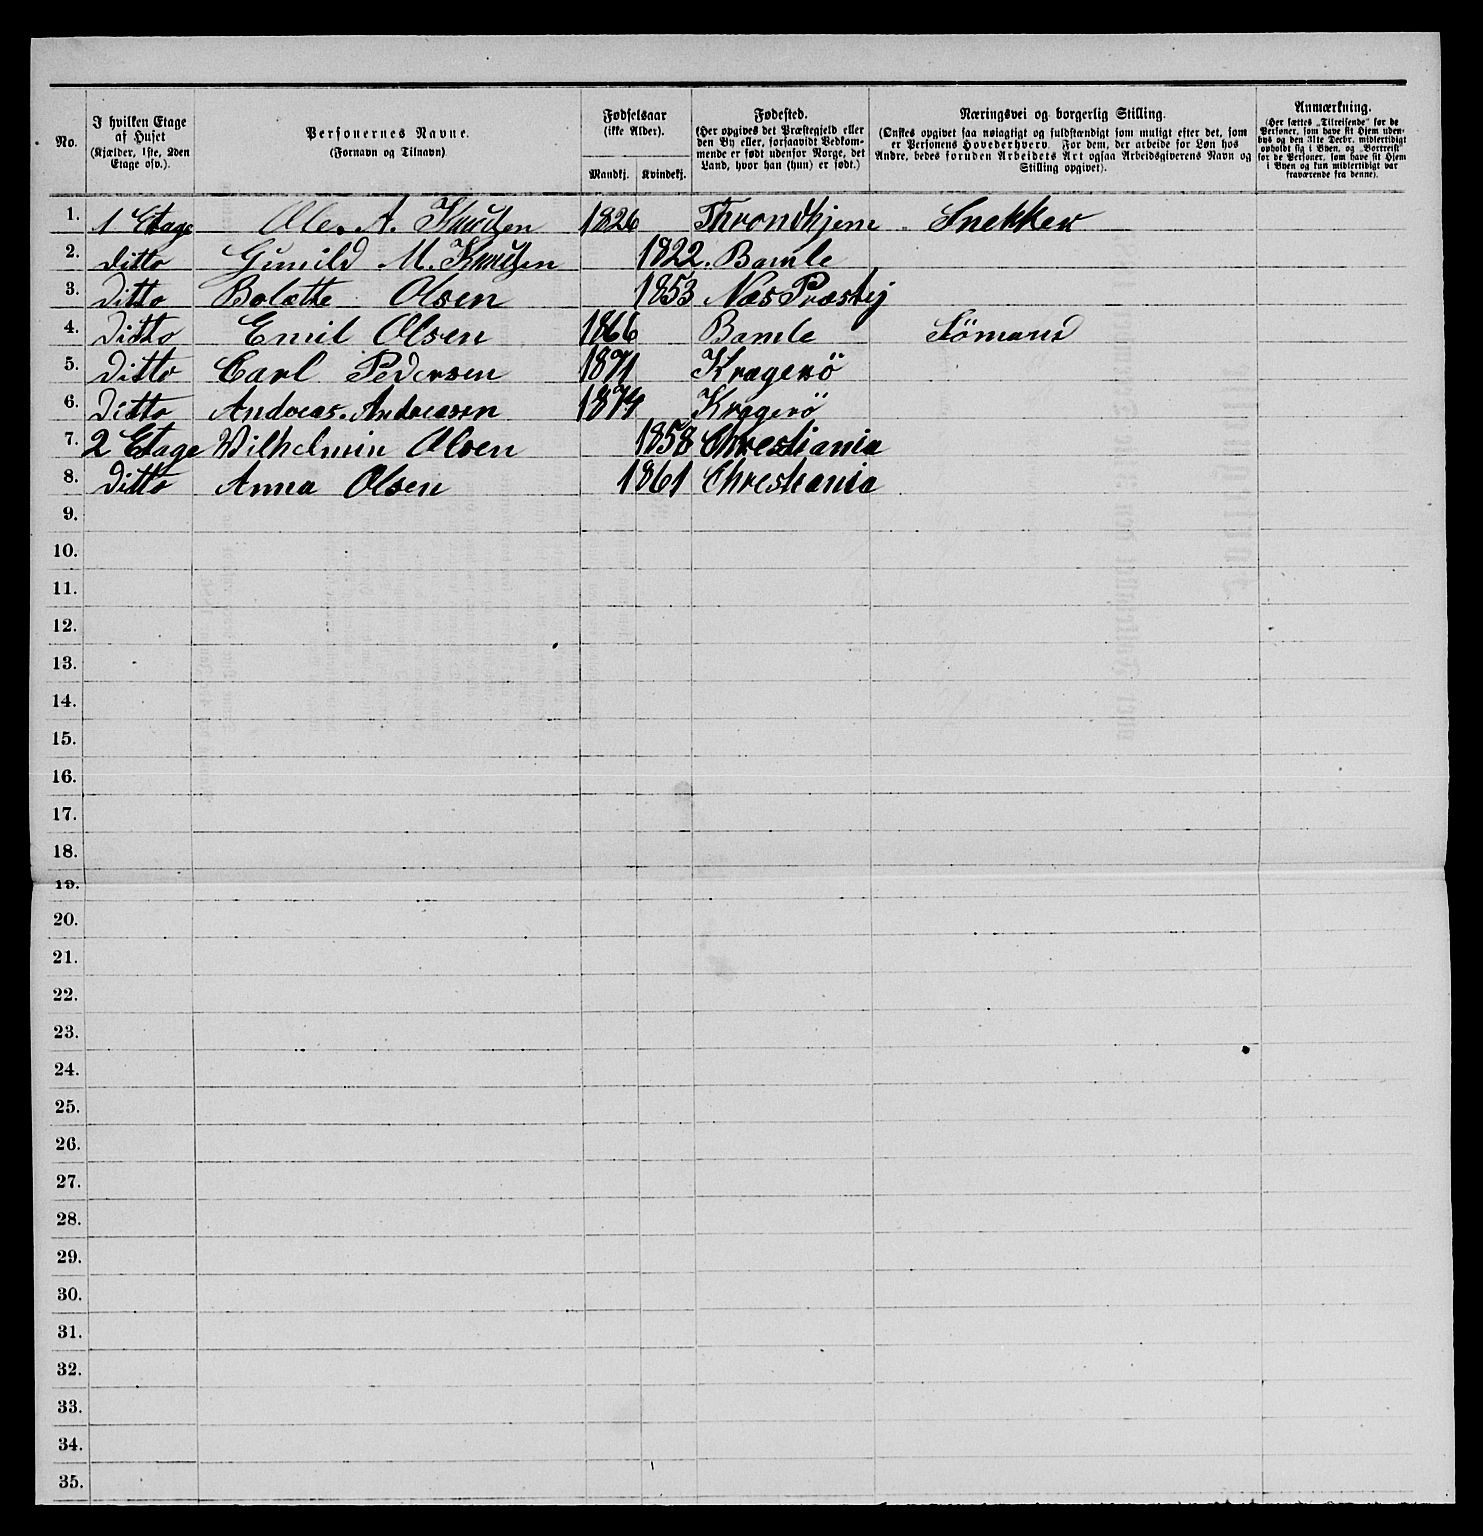 No.
I hvilken Etage
af Huset
(Kjælder, 1ste, 2den
Etage osv.)
Personernes Navne.
(Fornavn og Tilnavn)
Fødselsaar
(ikke Alder).
Mandkj. Kvindekj.
Fødested.
(Her opgives det Præstegjeld eller
den By eller, forsaavidt Vedkom-
mende er født udenfor Norge, det
Land, hvor han (hun) er født.)
Næringsvei og borgerlig Stilling.
(Ønskes opgivet saa nøiagtigt og fuldstændigt som muligt efter det, som
er Personens Hovederhverv. For dem, der arbeide for Løn hos
Andre, bedes foruden Arbeidets Art ogsaa Arbeidsgiverens Navn og
Stilling opgivet).
Anmærkning.
(Her sættes „Tilreisende" for de
Personer, som have sit Hjem uden-
bys og den 31te Decbr. midlertidigt
opholdt sig i Byen, og „Bortreist"
for de Personer, som have sit Hjem
i Byen og kun midlertidigt var
fraværende fra denne).
1. 1 Etage Ole. A. Knudsen 1826 Throndhjem Snekker
2. ditto Gunild M. Knudsen 1822. Bamle
3. Ditto Bolette Olsen 1853 Næs Præstej
4. Ditto Emil Olsen 1866 Bamle Sömand
5. Ditto Carl Pedersen 1871 Kragerö
6. Ditto Andreas. Andreasen 1874 Kragerö
7. 2 Etage Wilhelmin Olsen 1858 Christiania
8. Ditto Anna Olsen 1861 Christiania
9.
10.
11.
12.
13.
14.
15.
16.
17.
18.
19.
20.
21.
22.
23.
24.
25.
26.
27.
28.
29.
30.
31.
32.
33.
34.
35.